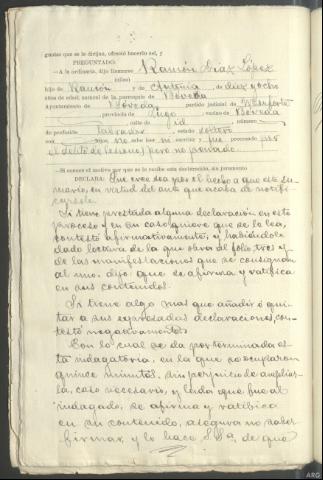 guntas que se le dirijan, ofreció hacerlo así, y
PREGUNTADO:
—A la ordinaria, dijo llamarse Ramón Díaz López
(alias)
hijo de Ramón y de Antonia, de diez y ocho
años de edad, natural de la parroquia de Bóveda
Ayuntamiento de Bóveda, partido judicial de Monforte
, provincia de Lugo, vecino de Bóveda
, calle de id, número
de profesión labrador, estado soltero
con hijos, sabe leer ni escribir y fué procesado por
el delito de lesiones, pero no penado
—Si conoce el motivo por que se le recibe esta declaración, sin juramento
DECLARA: Que cree sea por el hecho a que este su-
mario, en virtud del auto que acaba de notifi-
cársele.
Si tiene prestada alguna declaración en este
proceso y en su caso quiere que se le lea,
contestó afirmativamente, y habiéndole
dado lectura de la que obra al folio tres y
de las manifestaciones que se consignan
al uno, dijo: que se afirma y ratifica
en sus contenidos.
Si tiene algo mas que añadir o qui-
tar a sus expresadas declaraciones, con-
testó negativamente.
Con lo cual se da por terminada es-
ta indagatoria, en la que se emplearon
quince minutos, sin perjuicio de ampliar-
la, caso necesario, y leída que fue al
indagado, se afirma y ratifica
en su contenido, asegura no saber
firmar, y lo hace S.Sª. de que
ARG